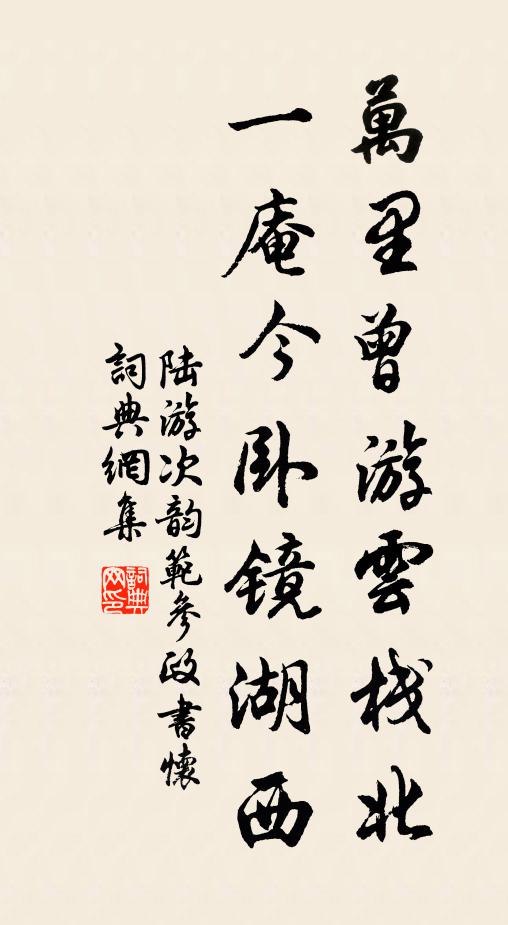 萬里曾游雲棧北
一庵今臥鏡湖西
陆游次韵範參政書懷
詞典網集
詞典
网印